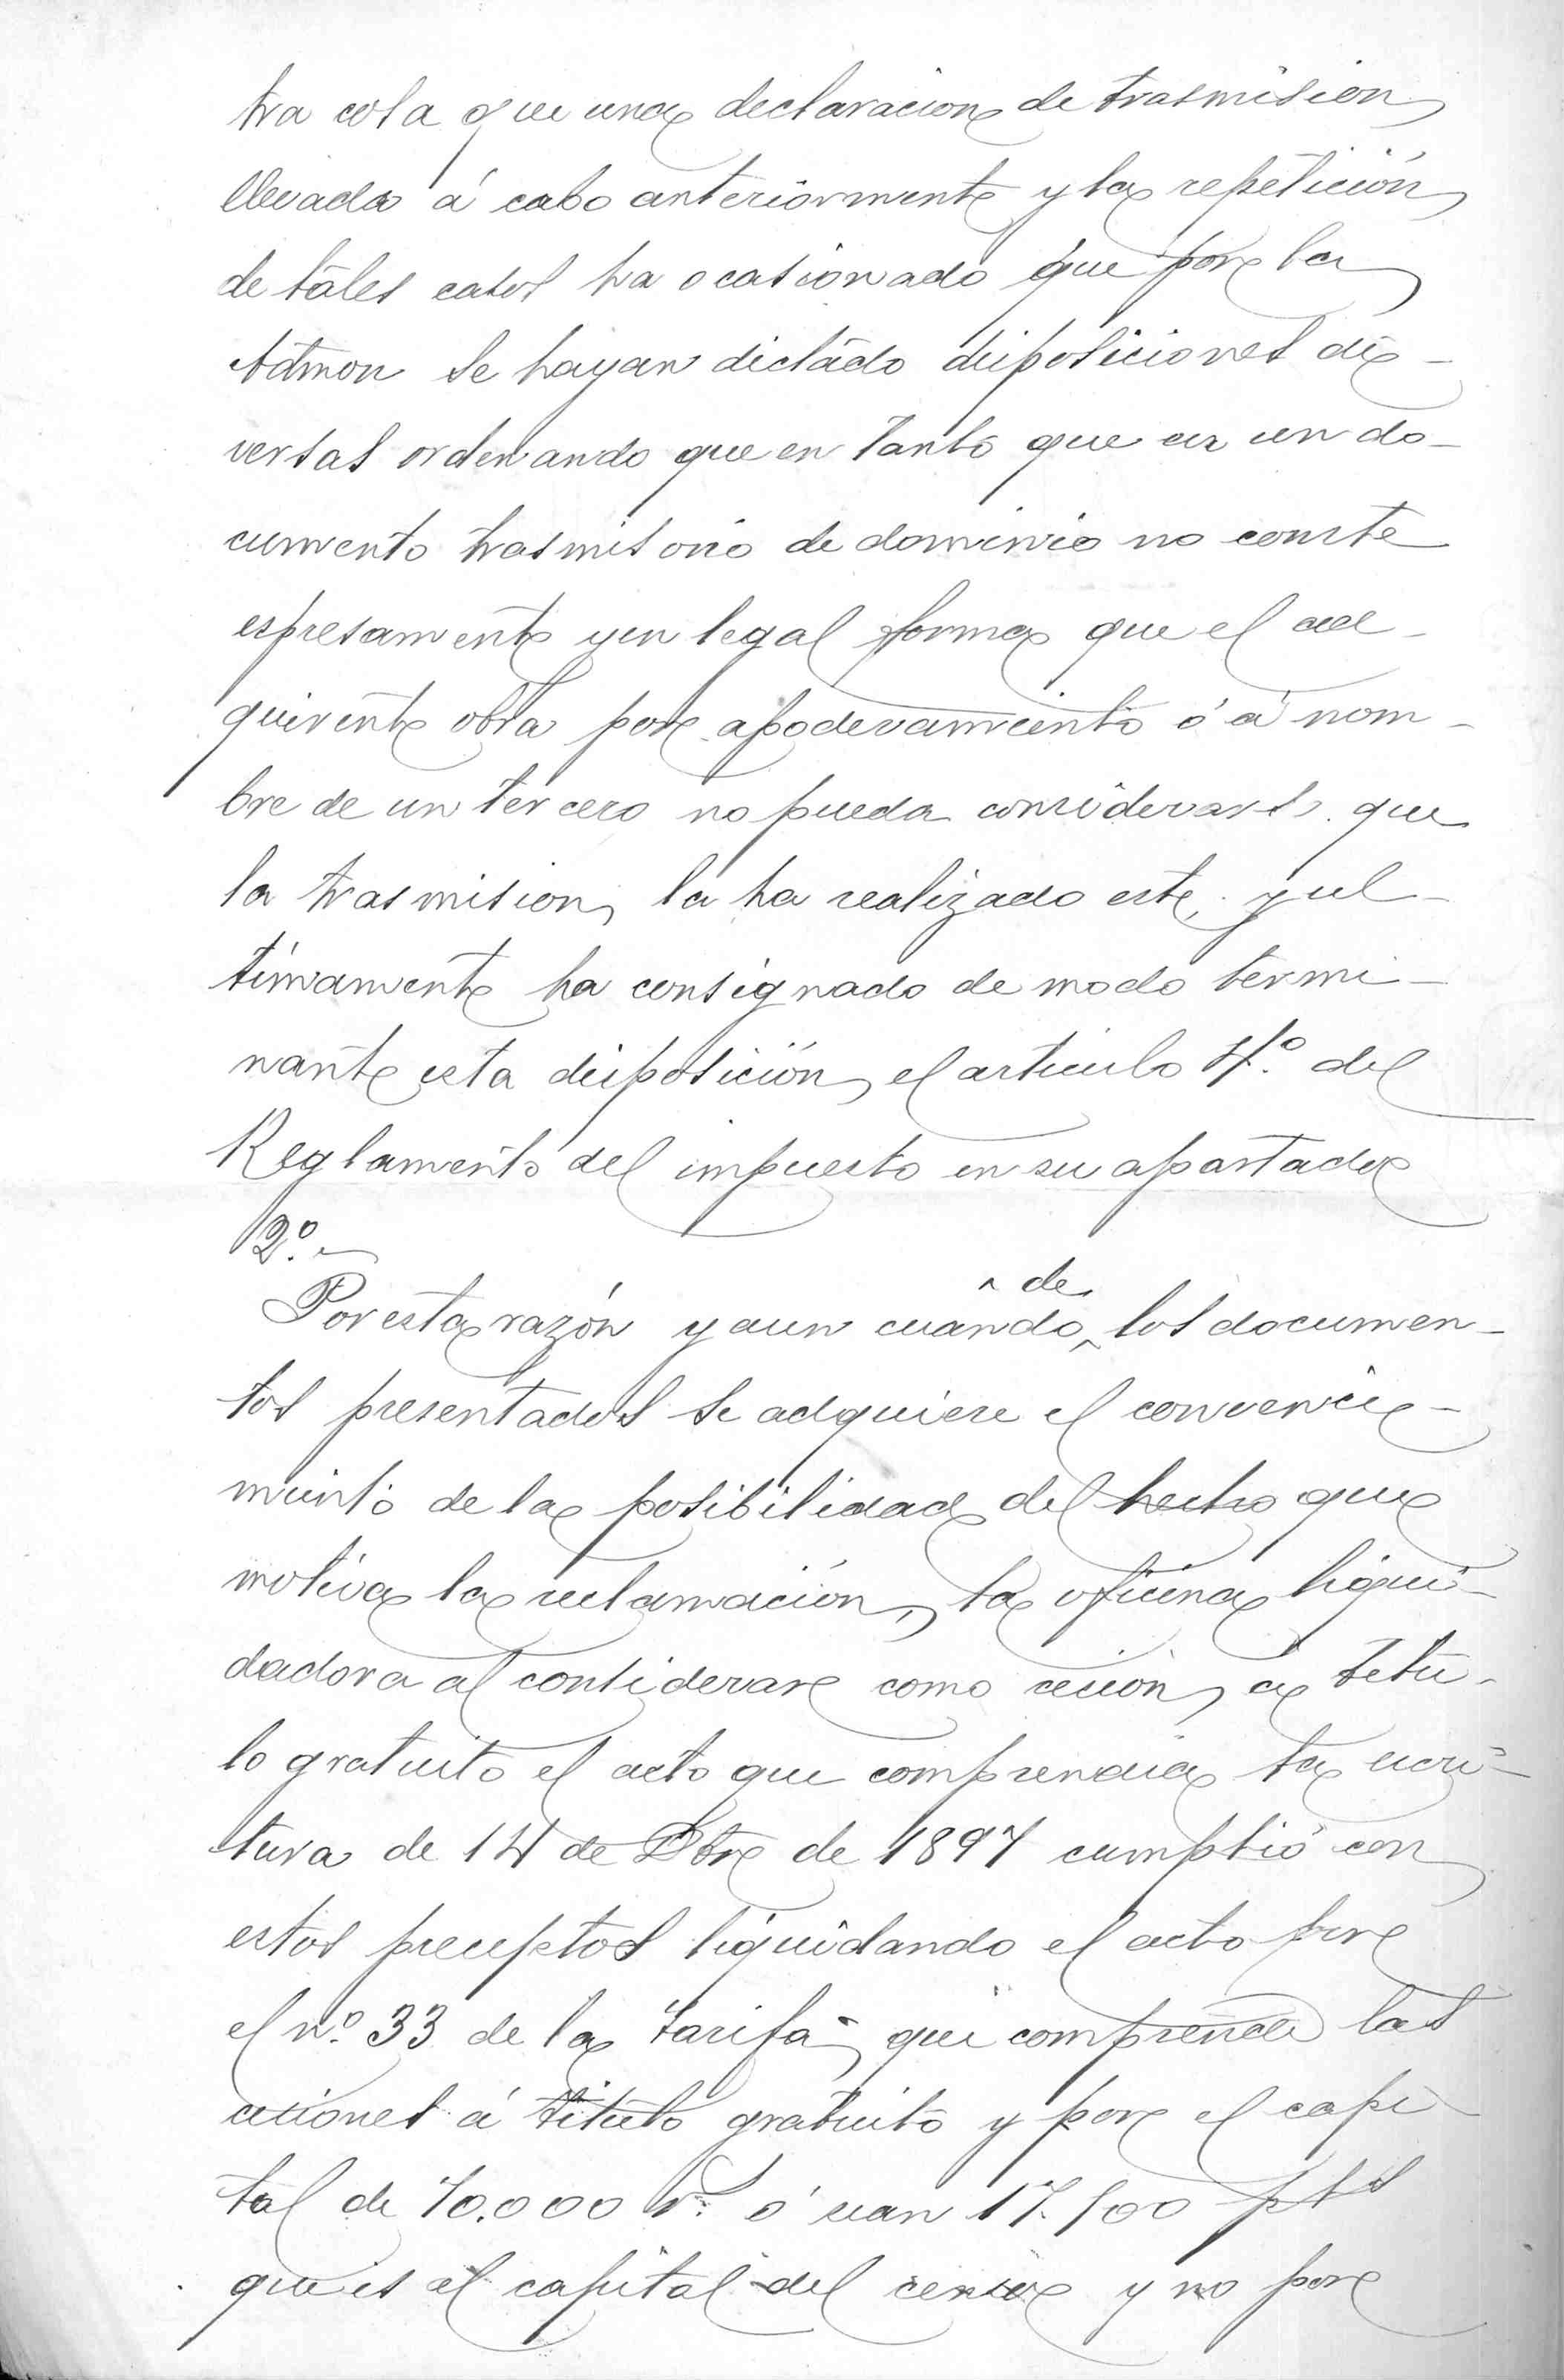 tra cosa que una declaracion de trasmision
llevada á cabo anteriormente y la repetición
de tales casos ha ocasionado que por la
Admon se hayan dictado disposiciones di-
versas ordenando que en tanto que en un do-
cumento trasmisorio de dominio no conste
espresamente y en legal forma que el ad-
quirente obra por apoderamiento ó á nom-
bre de un tercero no pueda considerarse que
la trasmision la ha realizado este, y ul-
timamente ha consignado de modo termi-
nante esta disposición el articulo 4.º del
Reglamento del impuesto en su apartado
2.º
Por esta razón y aun cuando ^de los documen-
tos presentados se adquiere el convenci-
miento de la posibilidad del hecho que
motiva la reclamación, la oficina liqui-
dadora al considerar como cesion a titu-
lo gratuito el acto que comprendia la escri-
tura de 14 de Dbre de 1897 cumplió con
estos preceptos liquidando el acto por
el nº 33 de la tarifa que comprende las
cesiones á titulo gratuito y por el capi-
tal de 70.000 r.s ó sean 17.500 pts
que es el capital del censo y no por